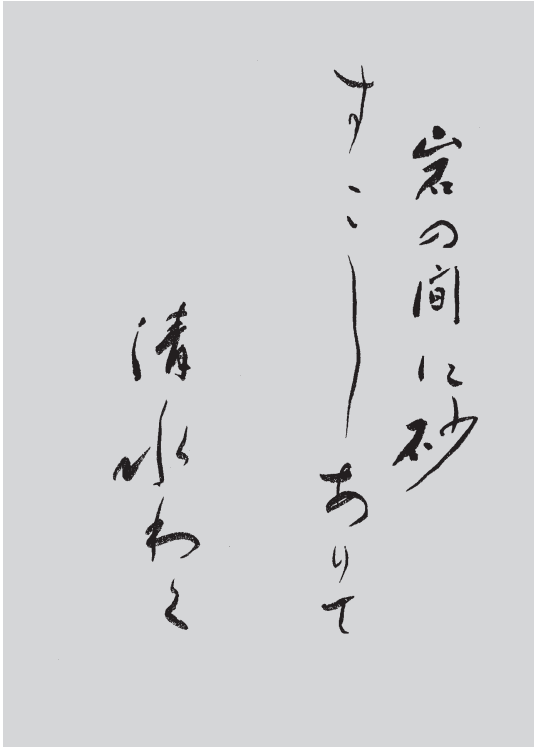 岩の間に砂
すこしありて
清水わく